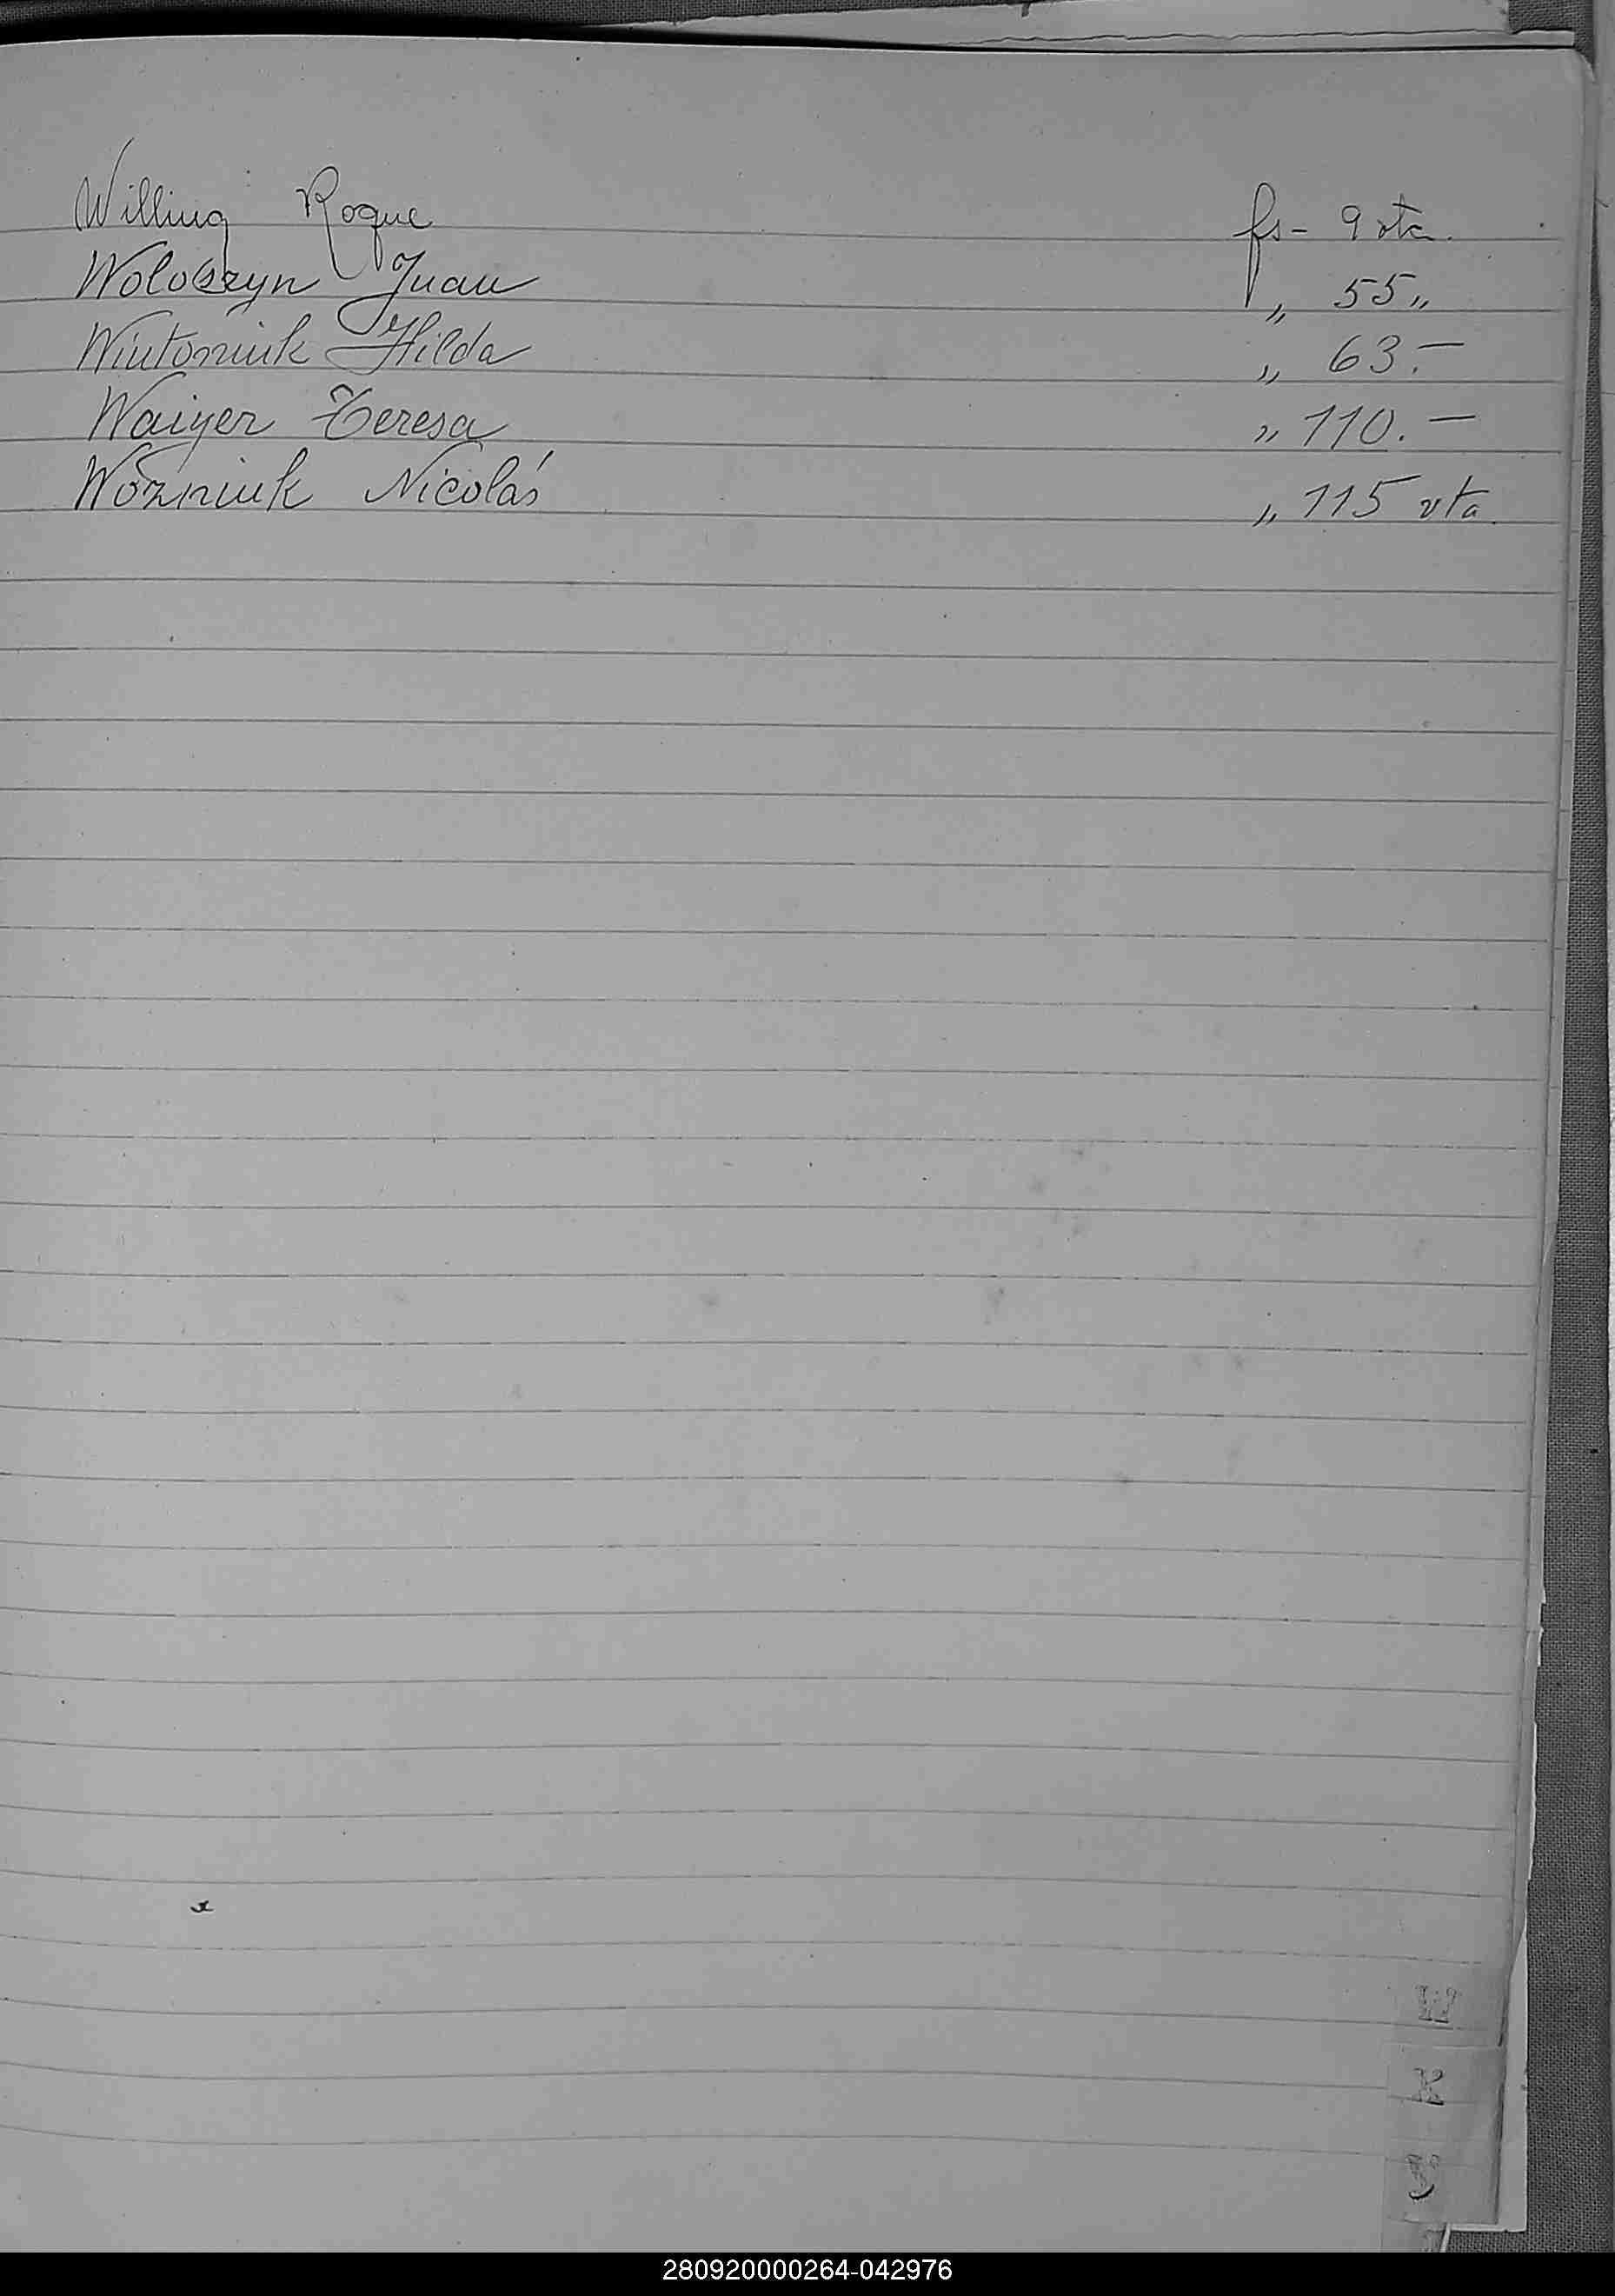 Willing Roque fs- 9 vta.
Woloszyn Juan „ 55 „
Wintoniuk Hilda „ 63.—
Waiyer Teresa „ 110.—
Wozniuk Nicolás „ 115 vta.
W
X
280920000264-042976